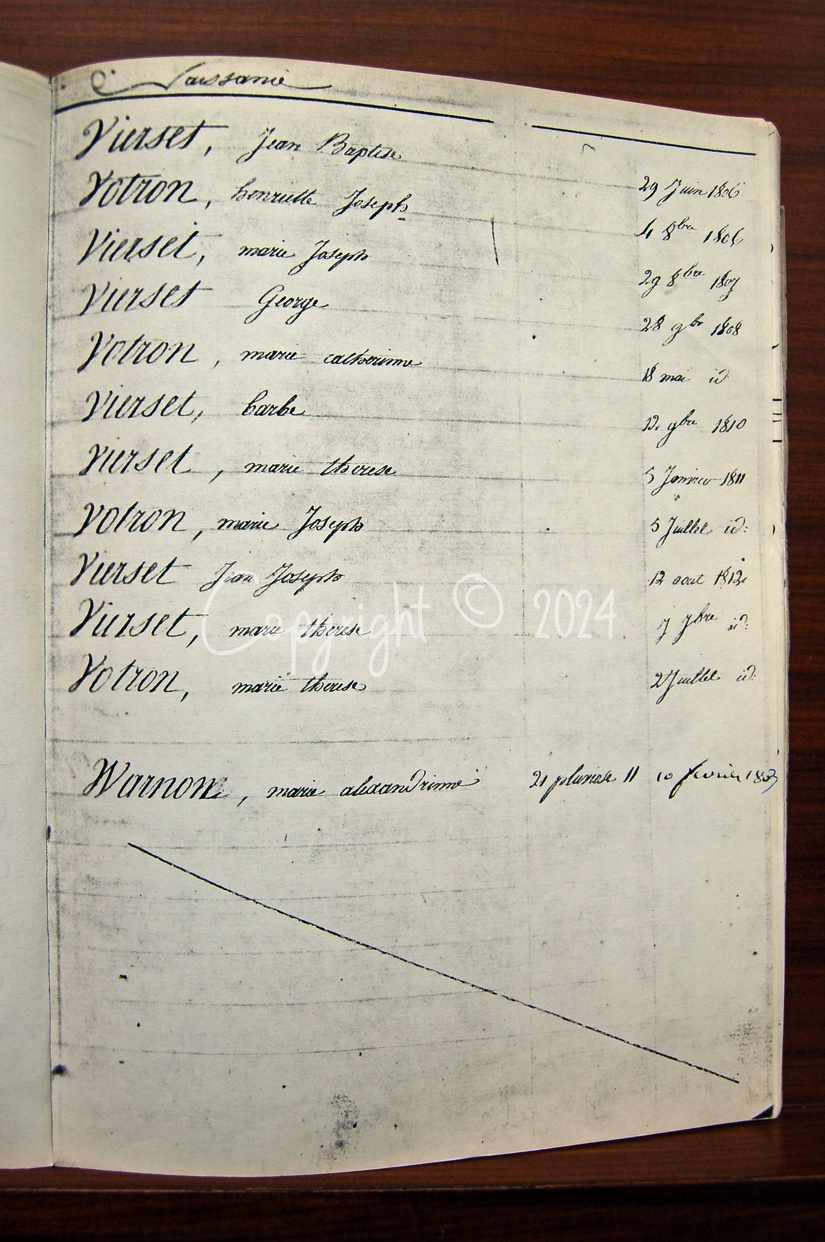 Naissance
Vierset, Jean Baptise 29 Juin 1806
Votron, henriette Joseph 4 8bre 1806
Vierset, marie Joseph 29 8bre 1807
Vierset George 28 9br 1808
Votron, marie catherinne 18 mai id
Vierset, barbe 12 9bre 1810
Vierset, marie therese 5 Janvier 1811
Votron, marie Joseph 5 Juillet id:
Vierset Jean Joseph 12 aout 1812
Vierset, marie therese 7 7bre id:
Votron, marie therese 2 Juillet id:
Copyright © 2024
Warnon, marie alexandrinne 21 pluviose 11 10 fevrier 1803